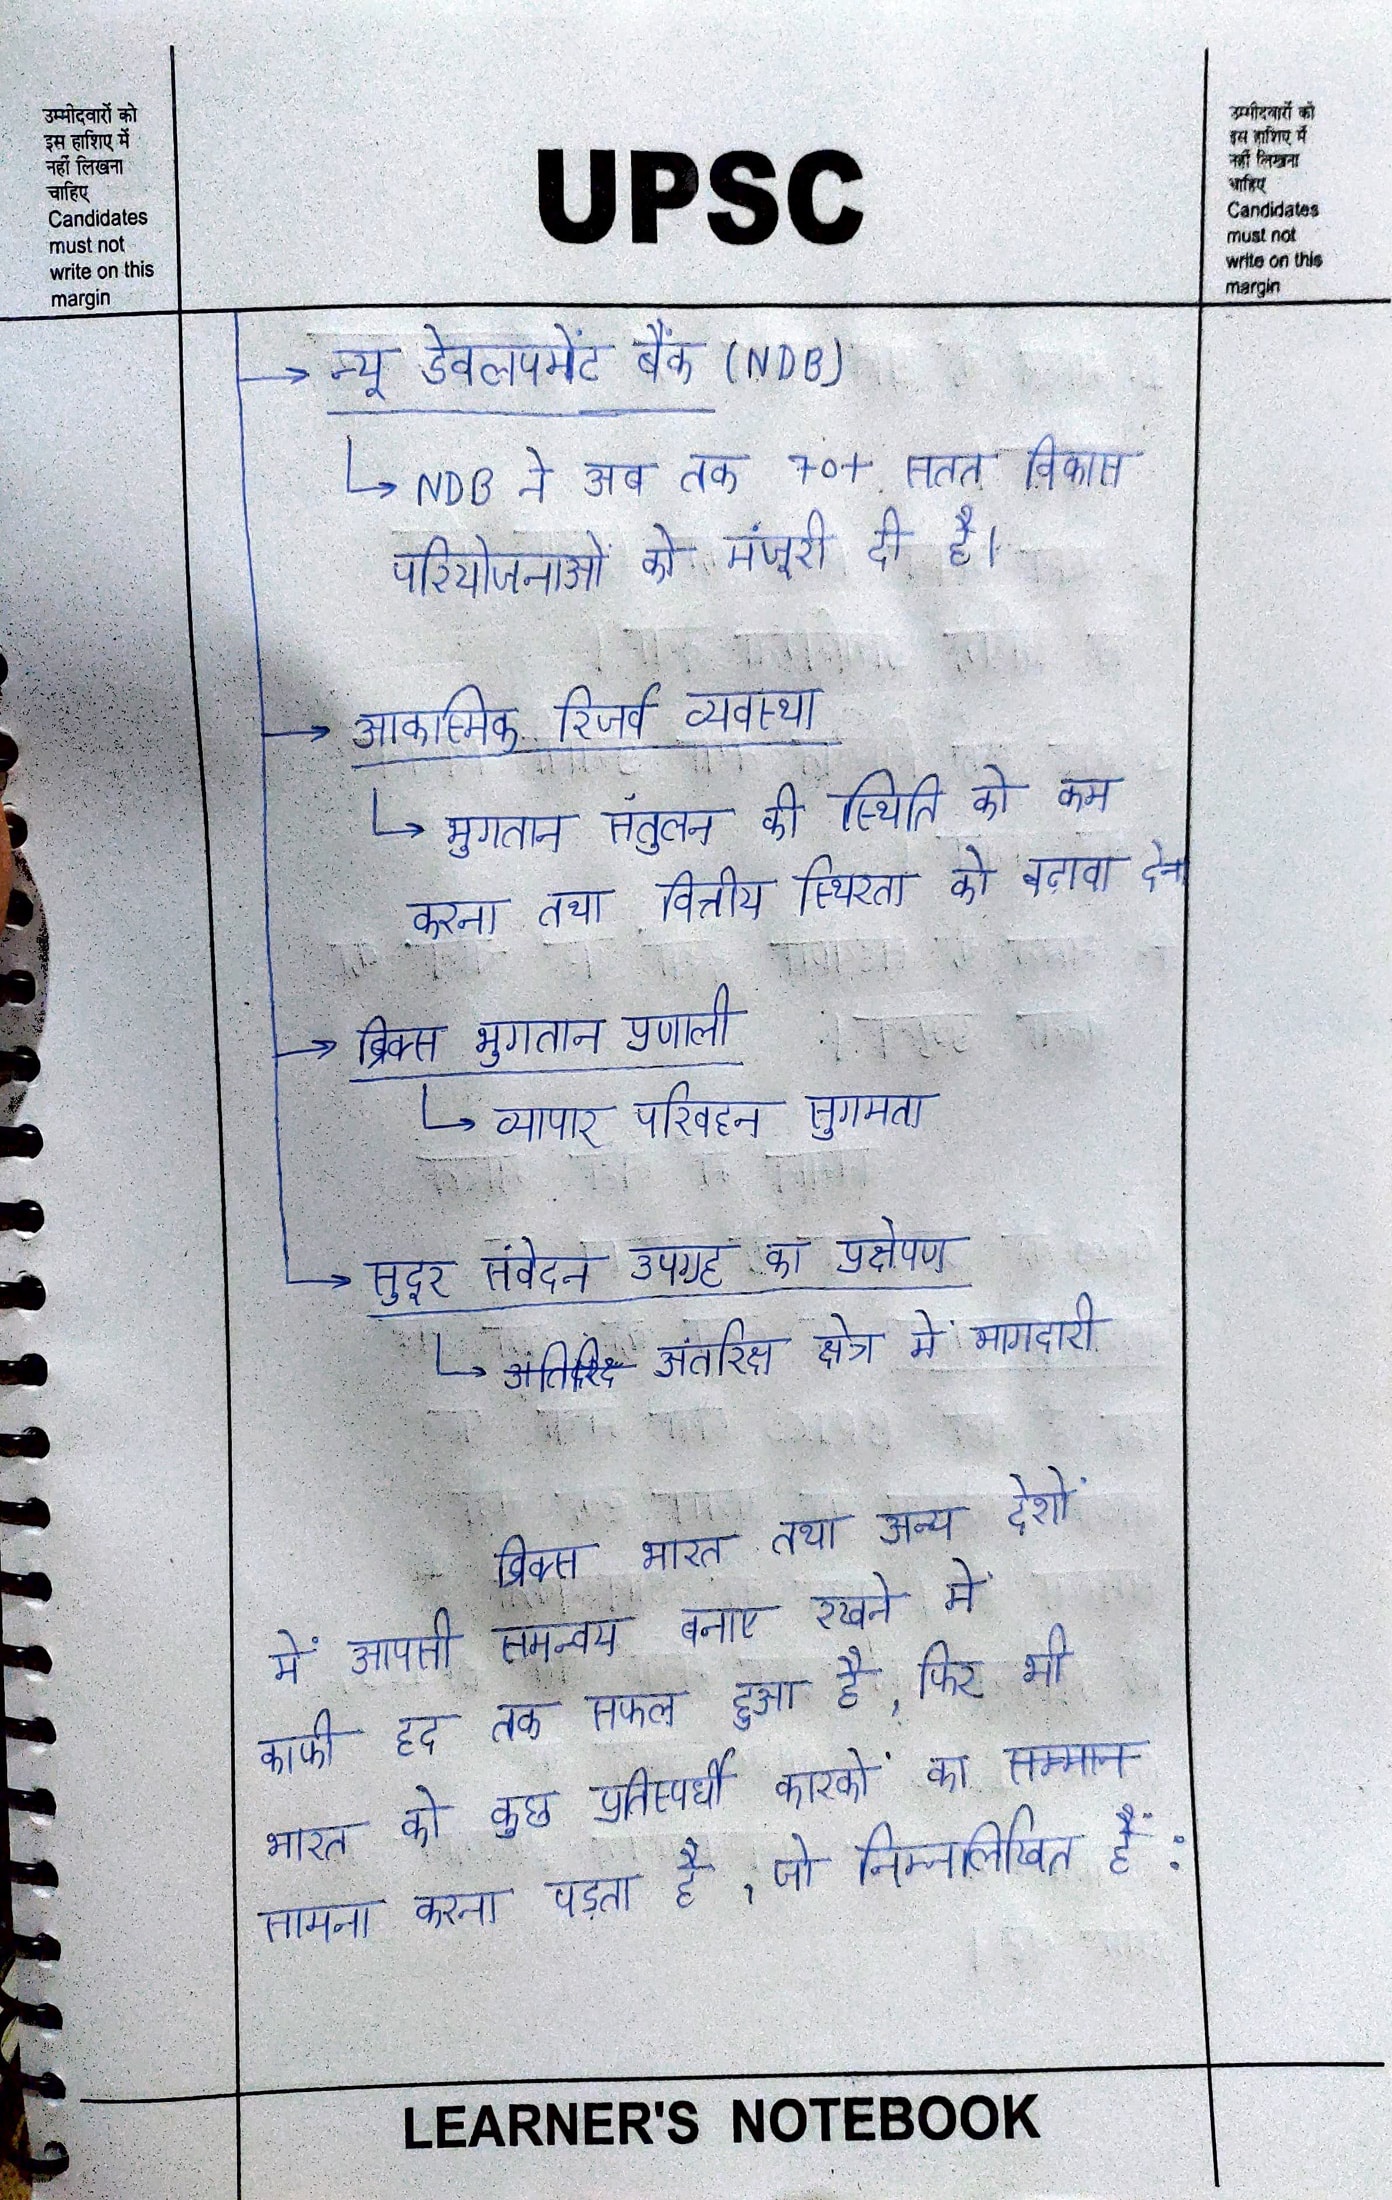 उम्मीदवारों को
इस हाशिए में
नहीं लिखना
चाहिए
Candidates
must not
write on this
margin
UPSC
उम्मीदवारों को
इस हाशिए में
नहीं लिखना
चाहिए
Candidates
must not
write on this
margin
→ न्यू डेवलपमेंट बैंक (NDB)
↳ NDB ने अब तक 70+ सतत विकास
परियोजनाओं को मंजूरी दी है।
→ आकास्मिक रिजर्व व्यवस्था
↳ भुगतान संतुलन की स्थिति को कम
करना तथा वित्तीय स्थिरता को बढ़ावा देना
→ ब्रिक्स भुगतान प्रणाली
↳ व्यापार परिवहन सुगमता
→ सुदूर संवेदन उपग्रह का प्रक्षेपण
↳ अंतरिक्ष क्षेत्र में भागदारी
ब्रिक्स भारत तथा अन्य देशों
में आपसी समन्वय बनाए रखने में
काफी हद तक सफल हुआ है, फिर भी
भारत को कुछ प्रतिस्पर्धी कारकों का सम्मान
सामना करना पड़ता है, जो निम्नलिखित हैं:
LEARNER'S NOTEBOOK